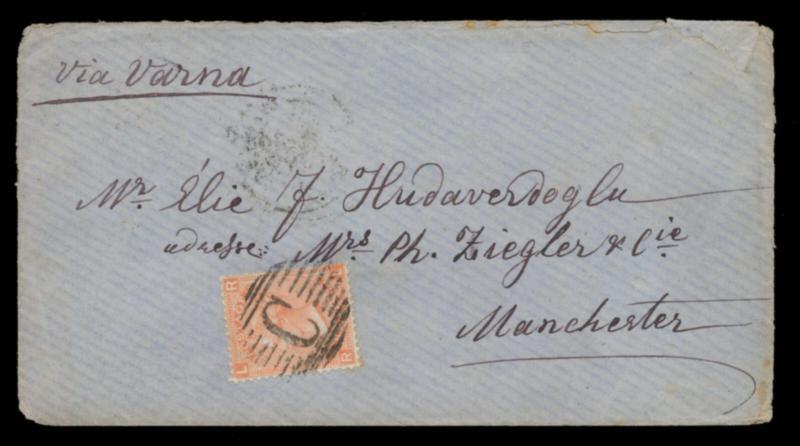 Via Varna
Mr. Élie J. Hudaverdoglu
adresse: Mrs Ph. Ziegler & Cie
Manchester
R
L
R
C